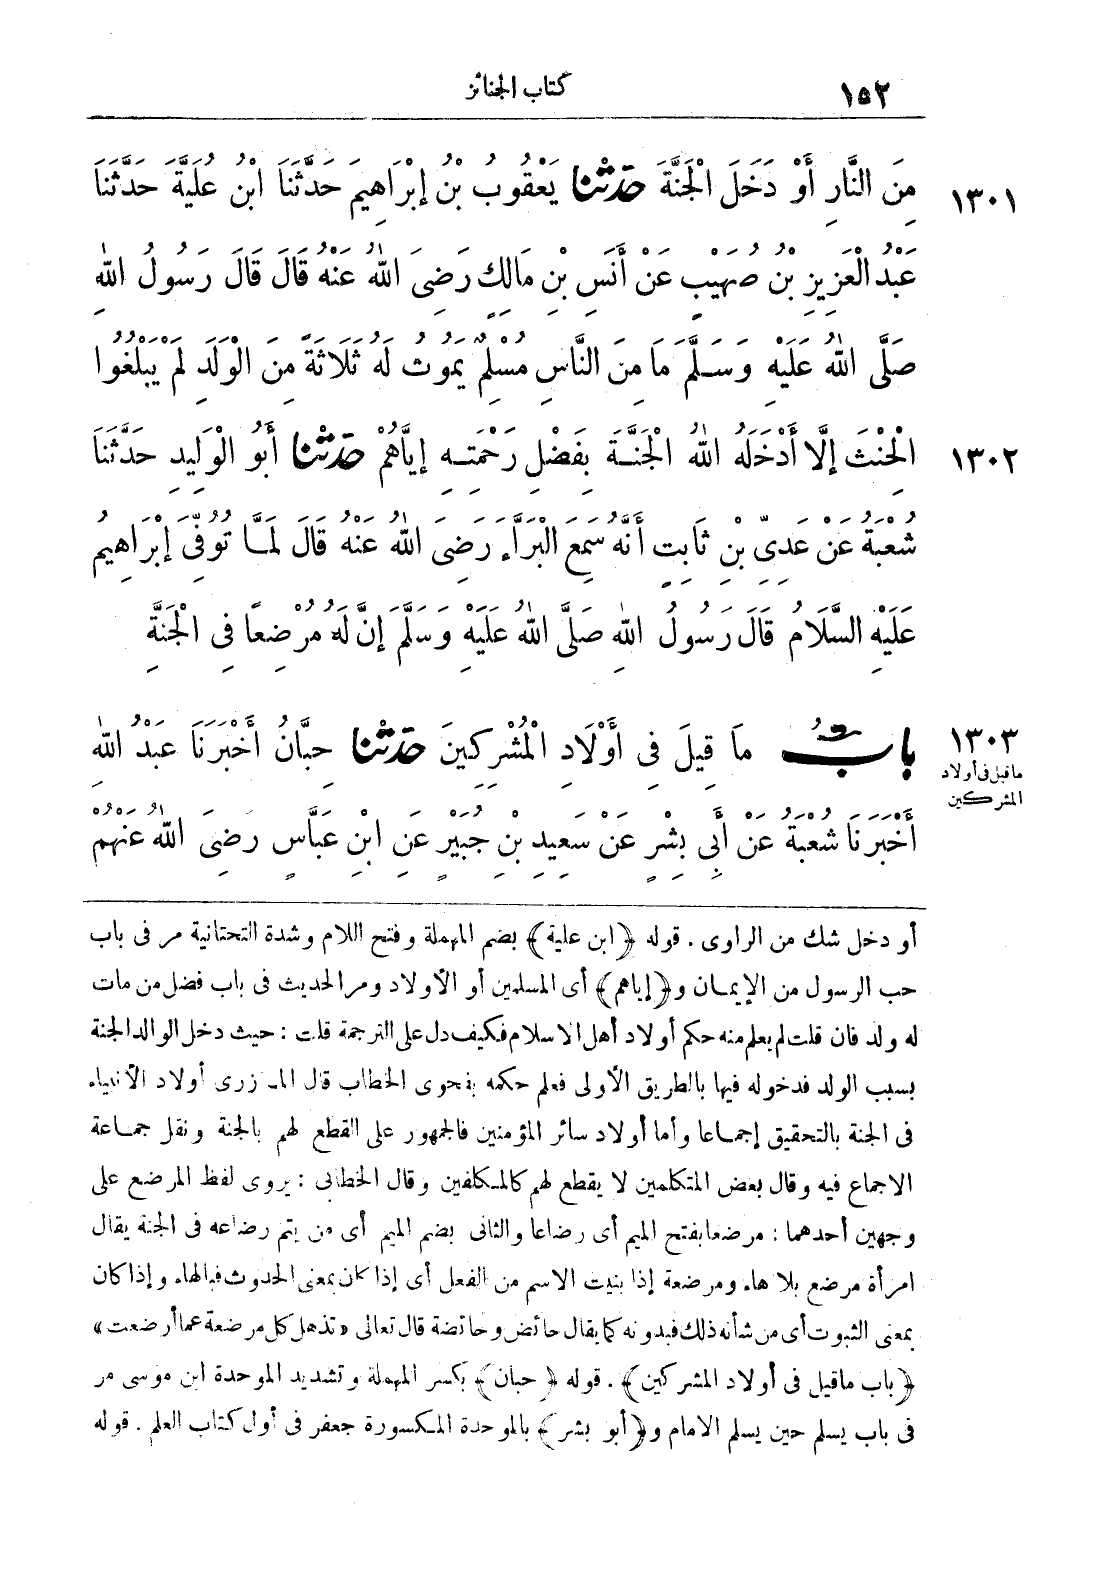 ١٥٢ كتاب الجنائز
١٣٠١ مِنَ النَّارِ أَوْ دَخَلَ الْجَنَّةَ حَدَّثَنَا يَعْقُوبُ بْنُ إِبْرَاهِيمَ حَدَّثَنَا ابْنُ عُلَيَّةَ حَدَّثَنَا
عَبْدُ الْعَزِيزِ بْنُ صُهَيْبٍ عَنْ أَنَسِ بْنِ مَالِكٍ رَضِىَ اللّٰهُ عَنْهُ قَالَ قَالَ رَسُولُ اللّٰهِ
صَلَّى اللّٰهُ عَلَيْهِ وَسَلَّمَ مَا مِنَ النَّاسِ مُسْلِمٌ يَمُوتُ لَهُ ثَلَاثَةٌ مِنَ الْوَلَدِ لَمْ يَبْلُغُوا
١٣٠٢ الْحِنْثَ إِلَّا أَدْخَلَهُ اللّٰهُ الْجَنَّةَ بِفَضْلِ رَحْمَتِهِ إِيَّاهُمْ حَدَّثَنَا أَبُو الْوَلِيدِ حَدَّثَنَا
شُعْبَةُ عَنْ عَدِىِّ بْنِ ثَابِتٍ أَنَّهُ سَمِعَ الْبَرَاءَ رَضِىَ اللّٰهُ عَنْهُ قَالَ لَمَّا تُوُفِّىَ إِبْرَاهِيمُ
عَلَيْهِ السَّلَامُ قَالَ رَسُولُ اللّٰهِ صَلَّى اللّٰهُ عَلَيْهِ وَسَلَّمَ إِنَّ لَهُ مُرْضِعًا فِى الْجَنَّةِ
١٣٠٣ بَابُ مَا قِيلَ فِى أَوْلَادِ الْمُشْرِكِينَ حَدَّثَنَا حِبَّانُ أَخْبَرَنَا عَبْدُ اللّٰهِ
ما قيل فى أولاد
المشركين
أَخْبَرَنَا شُعْبَةُ عَنْ أَبِى بِشْرٍ عَنْ سَعِيدِ بْنِ جُبَيْرٍ عَنِ ابْنِ عَبَّاسٍ رَضِىَ اللّٰهُ عَنْهُمْ
أو دخل شك من الراوى . قوله ﴿ابن علية﴾ بضم المهملة وفتح اللام وشدة التحتانية مر فى باب
حب الرسول من الإيمان و﴿إياهم﴾ أى المسلمين أو الأولاد ومر الحديث فى باب فضل من مات
له ولد فان قلت لم يعلم منه حكم أولاد أهل الاسلام فكيف دل على الترجمة قلت : حيث دخل الوالد الجنة
بسبب الولد فدخوله فيها بالطريق الأولى فعلم حكمه بفحوى الخطاب قال المازرى أولاد الأنبياء
فى الجنة بالتحقيق إجماعا وأما أولاد سائر المؤمنين فالجمهور على القطع لهم بالجنة ونقل جماعة
الاجماع فيه وقال بعض المتكلمين لا يقطع لهم كالمكلفين وقال الخطابى : يروى لفظ المرضع على
وجهين أحدهما : مرضعا بفتح الميم أى رضاعا والثانى بضم الميم أى من يتم رضاعه فى الجنة يقال
امرأة مرضع بلا هاء ومرضعة إذا بنيت الاسم من الفعل أى إذا كان بمعنى الحدوث فبالهاء وإذا كان
بمعنى الثبوت أى من شأنه ذلك فبدونه كما يقال حائض وحائضة قال تعالى «تذهل كل مرضعة عما أرضعت»
﴿باب ما قيل فى أولاد المشركين﴾ . قوله ﴿حبان﴾ بكسر المهملة وتشديد الموحدة ابن موسى مر
فى باب يسلم حين يسلم الامام و﴿أبو بشر﴾ بالموحدة المكسورة جعفر فى أول كتاب العلم . قوله